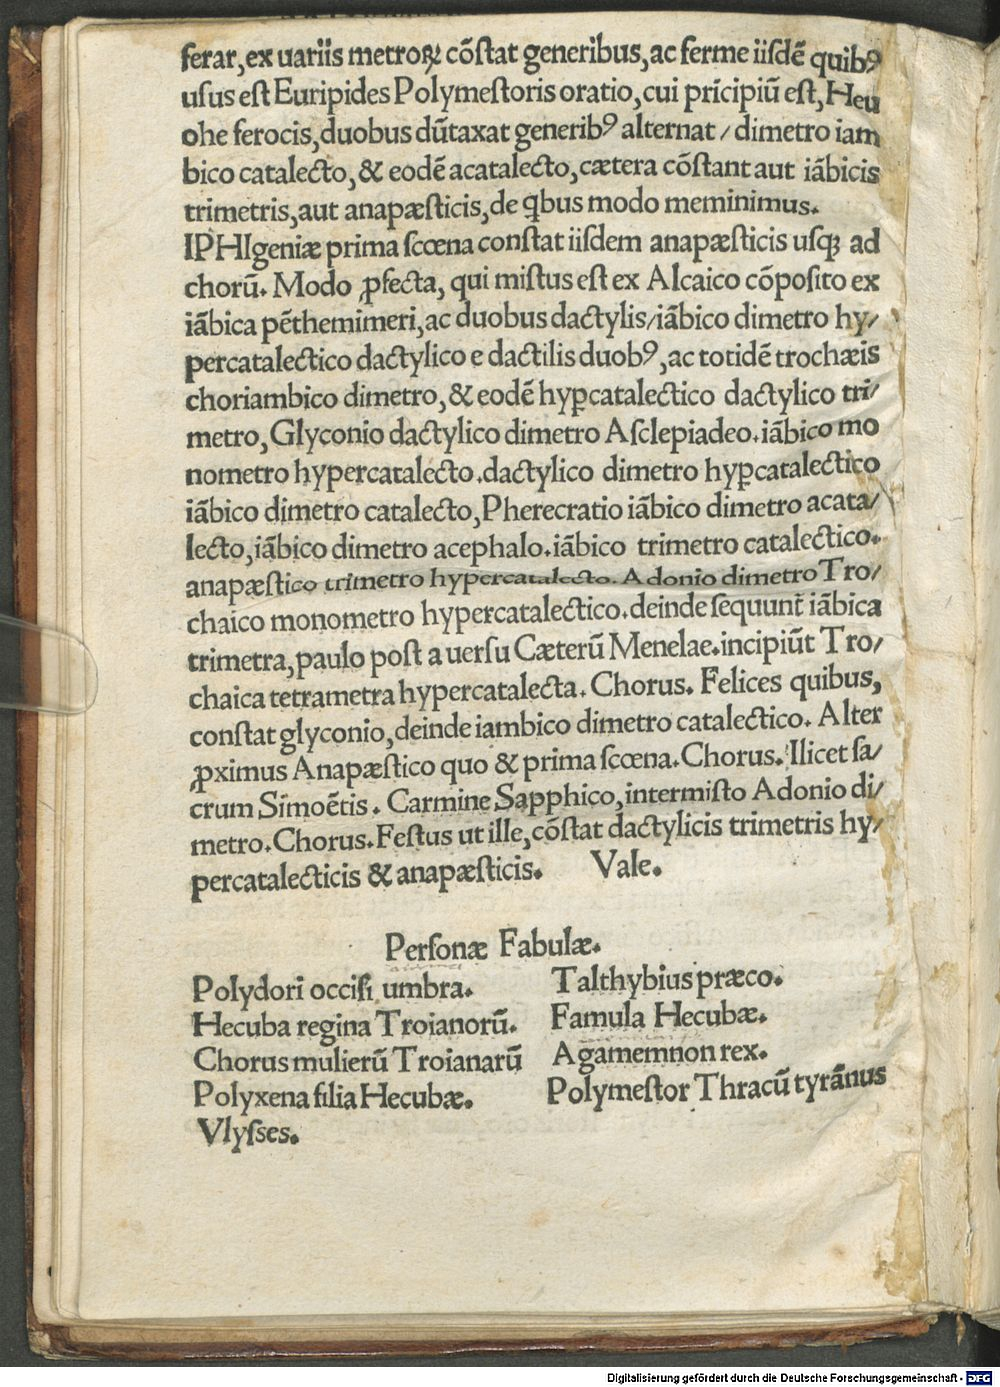 ferar, ex uariis metroꝝ cōſtat generibus, ac ferme iiſdē quibꝰ
uſus eſt Euripides Polymeſtoris oratio, cui prīcipiū eſt, Heu
ohe ferocis, duobus dūtaxat generibꝰ alternat / dimetro iam
bico catalecto, & eodē acatalecto, cætera cōſtant aut iābicis
trimetris, aut anapæſticis, de q̄bus modo meminimus.
IPHIgeniæ prima ſcœna conſtat iiſdem anapæſticis uſqꝫ ad
chorū. Modo ꝓfecta, qui miſtus eſt ex Alcaico cōpoſito ex
iābica pēthemimeri, ac duobus dactylis / iābico dimetro hy/
percatalectico dactylico e dactilis duobꝰ, ac totidē trochæis
choriambico dimetro, & eodē hyꝑcatalectico dactylico tri/
metro, Glyconio dactylico dimetro Aſclepiadeo. iābico mo
nometro hypercatalecto. dactylico dimetro hyꝑcatalectico
iābico dimetro catalecto, Pherecratio iābico dimetro acata/
lecto, iābico dimetro acephalo. iābico trimetro catalectico.
anapæſtico trimetro hypercatalecto. Adonio dimetro Tro/
chaico monometro hypercatalectico. deinde ſequunt̄ iābica
trimetra, paulo poſt a uerſu Cæterū Menelae. incipiūt Tro/
chaica tetrametra hypercatalecta. Chorus. Felices quibus,
conſtat glyconio, deinde iambico dimetro catalectico. Alter
ꝓximus Anapæſtico quo & prima ſcœna. Chorus. Ilicet ſa/
crum Simoētis. Carmine Sapphico, intermiſto Adonio di/
metro. Chorus. Feſtus ut ille, cōſtat dactylicis trimetris hy/
percatalecticis & anapæſticis. Vale.
Perſonæ Fabulæ.
Polydori occiſi umbra.
Hecuba regina Troianorū.
Chorus mulierū Troianarū
Polyxena filia Hecubæ.
Vlyſses.
Talthybius præco.
Famula Hecubæ.
Agamemnon rex.
Polymeſtor Thracū tyrānus
Digitalisierung gefördert durch die Deutsche Forschungsgemeinschaft - DFG